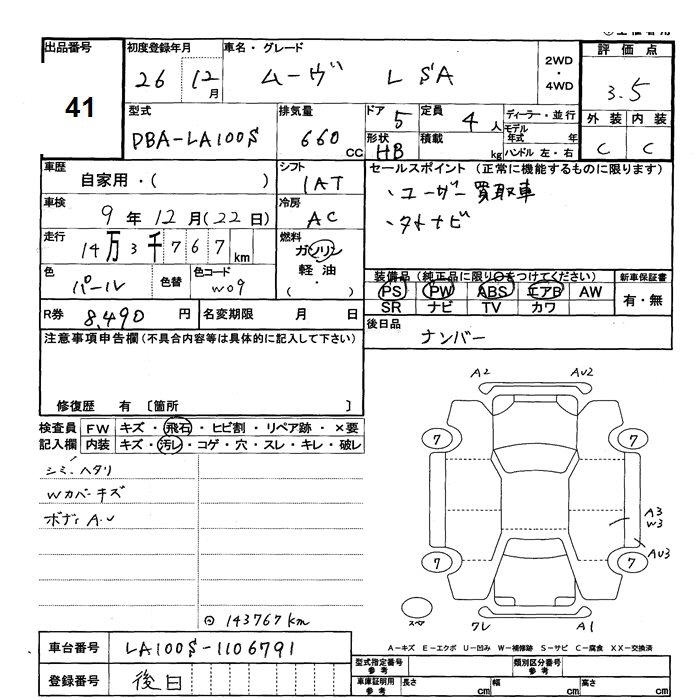 出品番号 初度登録年月 車名・グレード 2WD・4WD 評価点
41 26 12月 ムーヴ L SA 3.5
型式 排気量 ドア 5 定員 4人 ディーラー・並行 外装 内装
DBA-LA100S 660cc 形状 HB 積載 kg モデル年式 年 ハンドル 左・右 C C
車歴 自家用・( ) シフト IAT セールスポイント (正常に機能するものに限ります)
車検 9年12月(22日) 冷房 AC ・ユーザー買取車
走行 14万3千767km 燃料 ガソリン 軽油 ・( ) ・タトナビ
色 パール 色替 色コード W09 装備品 (純正品に限り○をつけてください) 新車保証書
PS PW ABS エアB AW 有・無
R券 8,490円 名変期限 月 日 SR ナビ TV カワ
後日品 ナンバー
注意事項申告欄 (不具合内容等は具体的に記入して下さい)
修復歴 有 〔箇所 〕
検査員 FW キズ・飛石・ヒビ割・リペア跡・×要
記入欄 内装 キズ・汚レ・コゲ・穴・スレ・キレ・破レ
シミ、ヘタリ
Wカバーキズ
ボディ A.U
A2 AU2
7 7
A3
W3
AU3
7 7
スペア ワレ A1
⊙ 143767km
A-キズ E-エクボ U-凹み W-補修跡 S-サビ C-腐食 XX-交換済
車台番号 LA100S-1106791
型式指定番号 参考 類別区分番号 参考
登録番号 後日
車庫証明用 参考 長さ cm 幅 cm 高さ cm